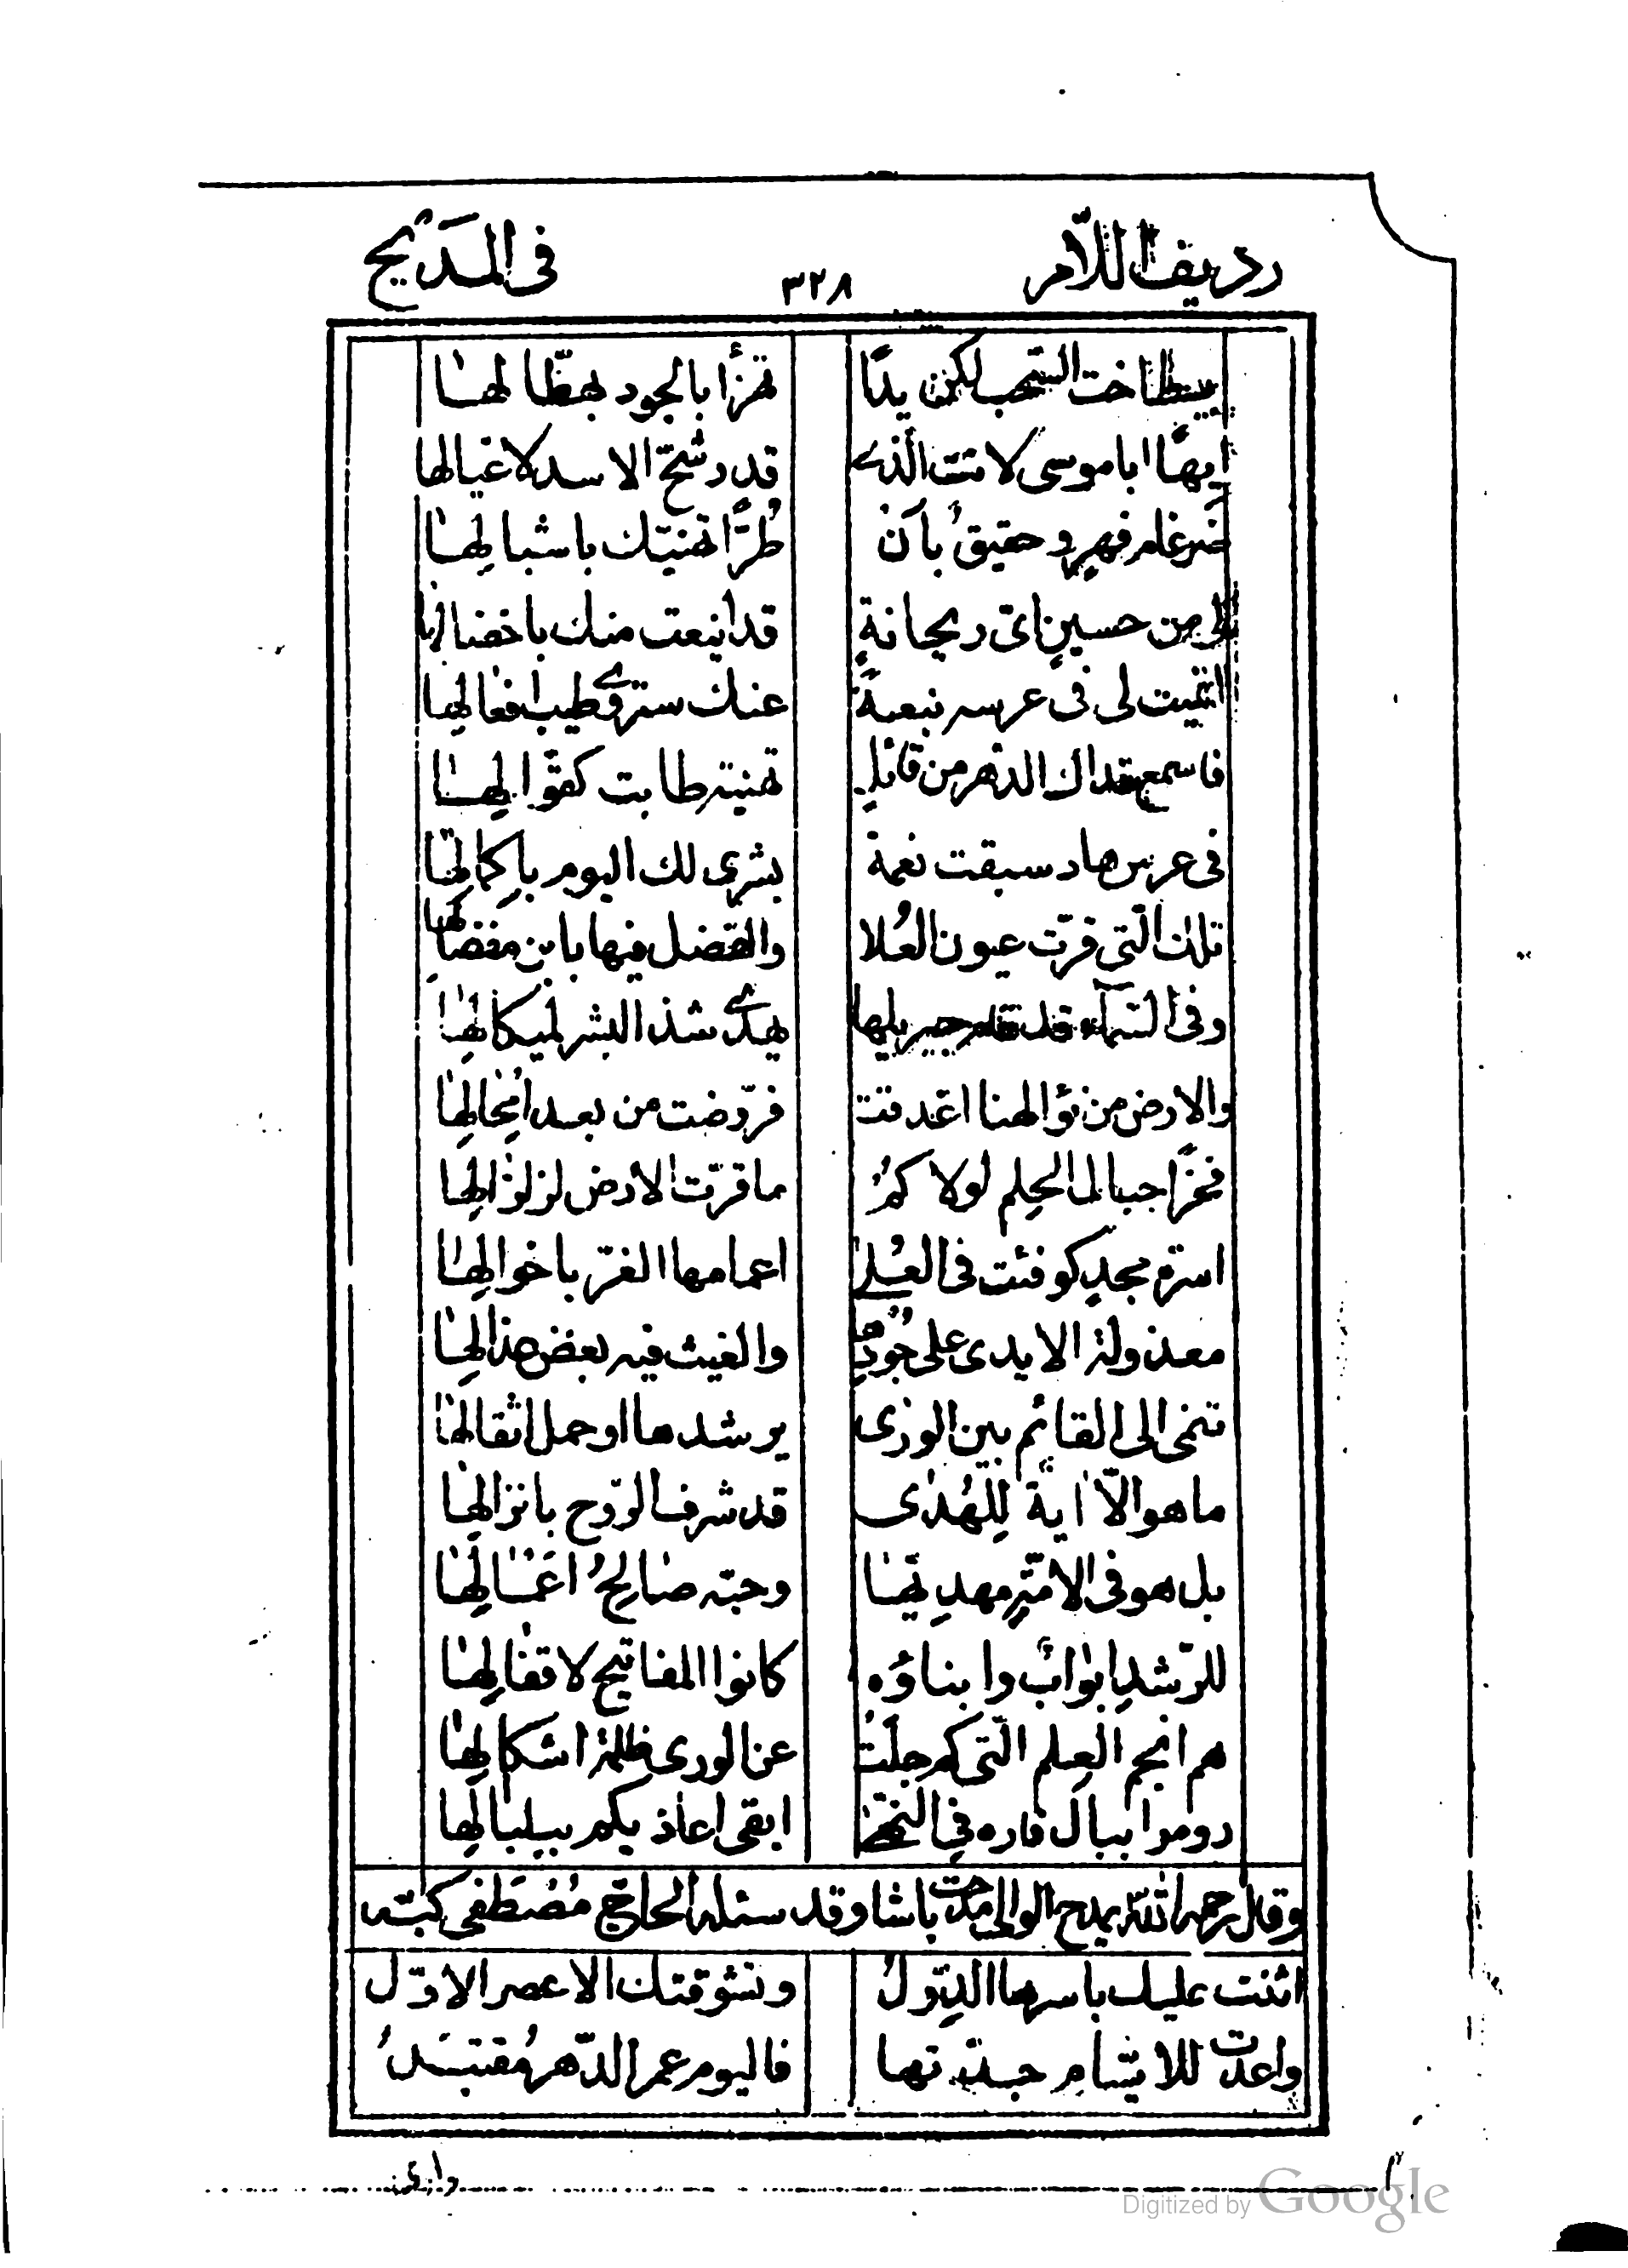 رديف اللّام ٣٢٨ فى المَديح
اخت السّحب لكن يدًا تهزأ بالجود بهطّالها
ايهًا ابا موسى لانت الّذى قد رشّح الاسد لاغيالها
ضرغام فهرٍ وحقيقٌ بأن طُرًّا تهنيّك باشبالِها
من حسينٍ اىّ ريحانةٍ قد اينعت منك باخضالها
انبتّ لى فى عرسه نبعةً عنك ستروى طيب افعالِها
فاسمع فداك الدّهر من قائلٍ تهنيةً طابت كقوّالِها
فى عرس هاد سبقت نعمة بشرى لك اليوم باِكمالِها
تلك الّتى قرّت عيون العُلا والفضل فيها بابن مفضالِها
وفى السّمآء قد قام جبريلها يهدى شذا البشر لميكالِها
والارض من نوّ الهنا اغدقت فروّضت من بعد امحالِها
فخرًا جبالا لحِلم لولاكمُ ما قرّت الارض لزلزالِها
اسرة مجدٍ كوفئت فى العُلى اعمامها الغرّ باخوالِها
معذولة الايدى على جُودِها والغيث فيه بعض عذالِها
تنمى الى القائم بين الورٰى يرشدها او حمل اثقالها
ما هو الّا اٰيةٌ لِلهُدٰى قد شرف الرّوح بانزالِها
بل هو فى الامّةِ مهديّها وحبّه صالحُ اَعْمالِها
للرّشدِ ابوابٌ وابناؤه كانوا المفاتيح لاقفالِها
هم انجم العِلم الّتى كم جلَتْ عن الورى ظلمة اشكالِها
دوموا ببال فاره فى ابقى اعاديكم ببلبالِها
وقال رحمه اللّه يمدح الوالى مدحت باشا وقد سئله الحاجّ مُصْطَفى كبّه
اثنت عليك باسرها الدّولُ وتشوّقتك الاعصر الاوّل
واعدت للايّام جدّتها فاليوم عمر الدّهر مُقتبَلُ
Digitized by Google